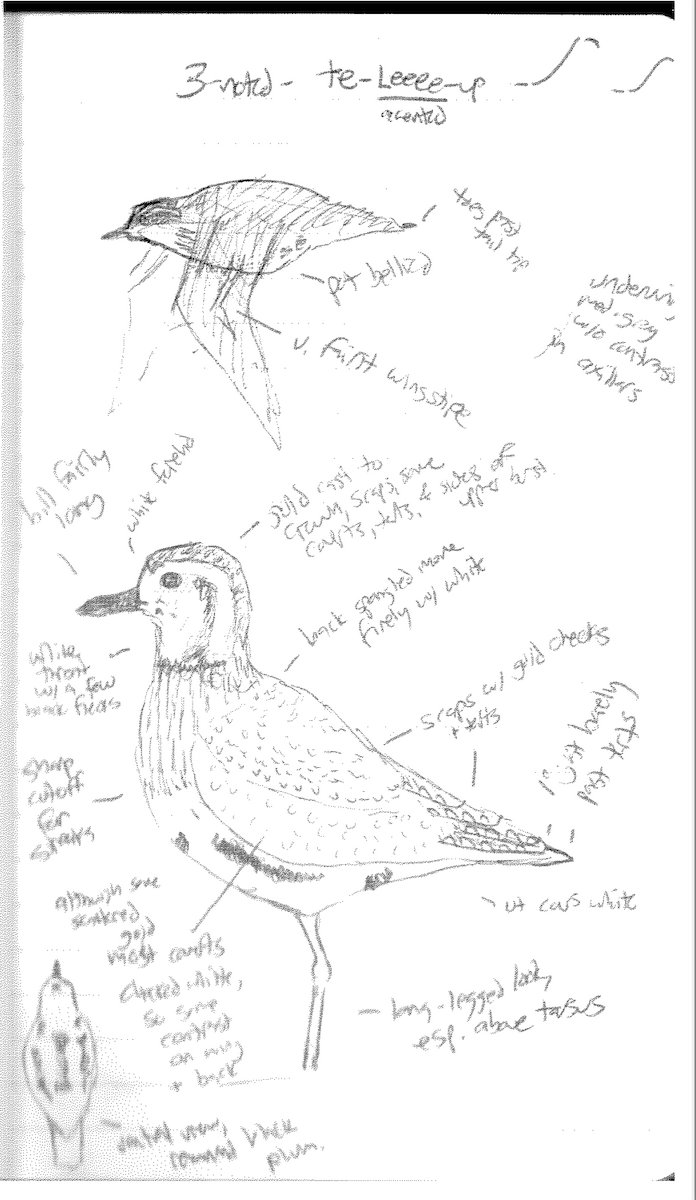 3-noted- te-Leeee-up
accented
toes past
tail tip
pot bellied
v. faint wingstripe
underwing
med-grey
w/o contrast
in axillars
bill fairly
long
white forehd
gold cast to
crown, scaps, some
cov'ts, trts, & sides of
upper brst
back spangled more
finely w/ white
white
throat
w/ a few
black flecks
scaps w/ gold checks
+ trts
1° just barely
past trts
sharp
cutoff
for
streaks
ut cov's white
although some
scattered
gold
most cov'ts
checked white,
so some
contrast
on wing
+ back
long-legged look,
esp. above tarsus
ventral view,
black
plum.